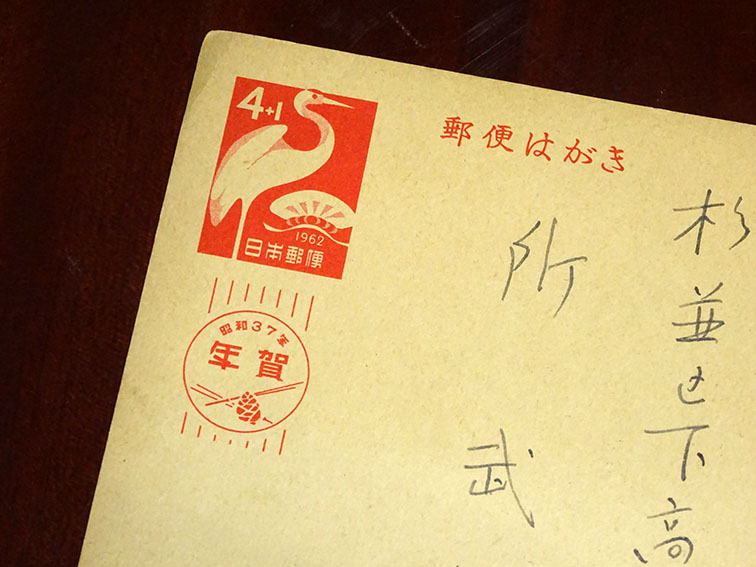 4+1
1962
日本郵便
昭和37年
年賀
郵便はがき
杉並区下高
所 武